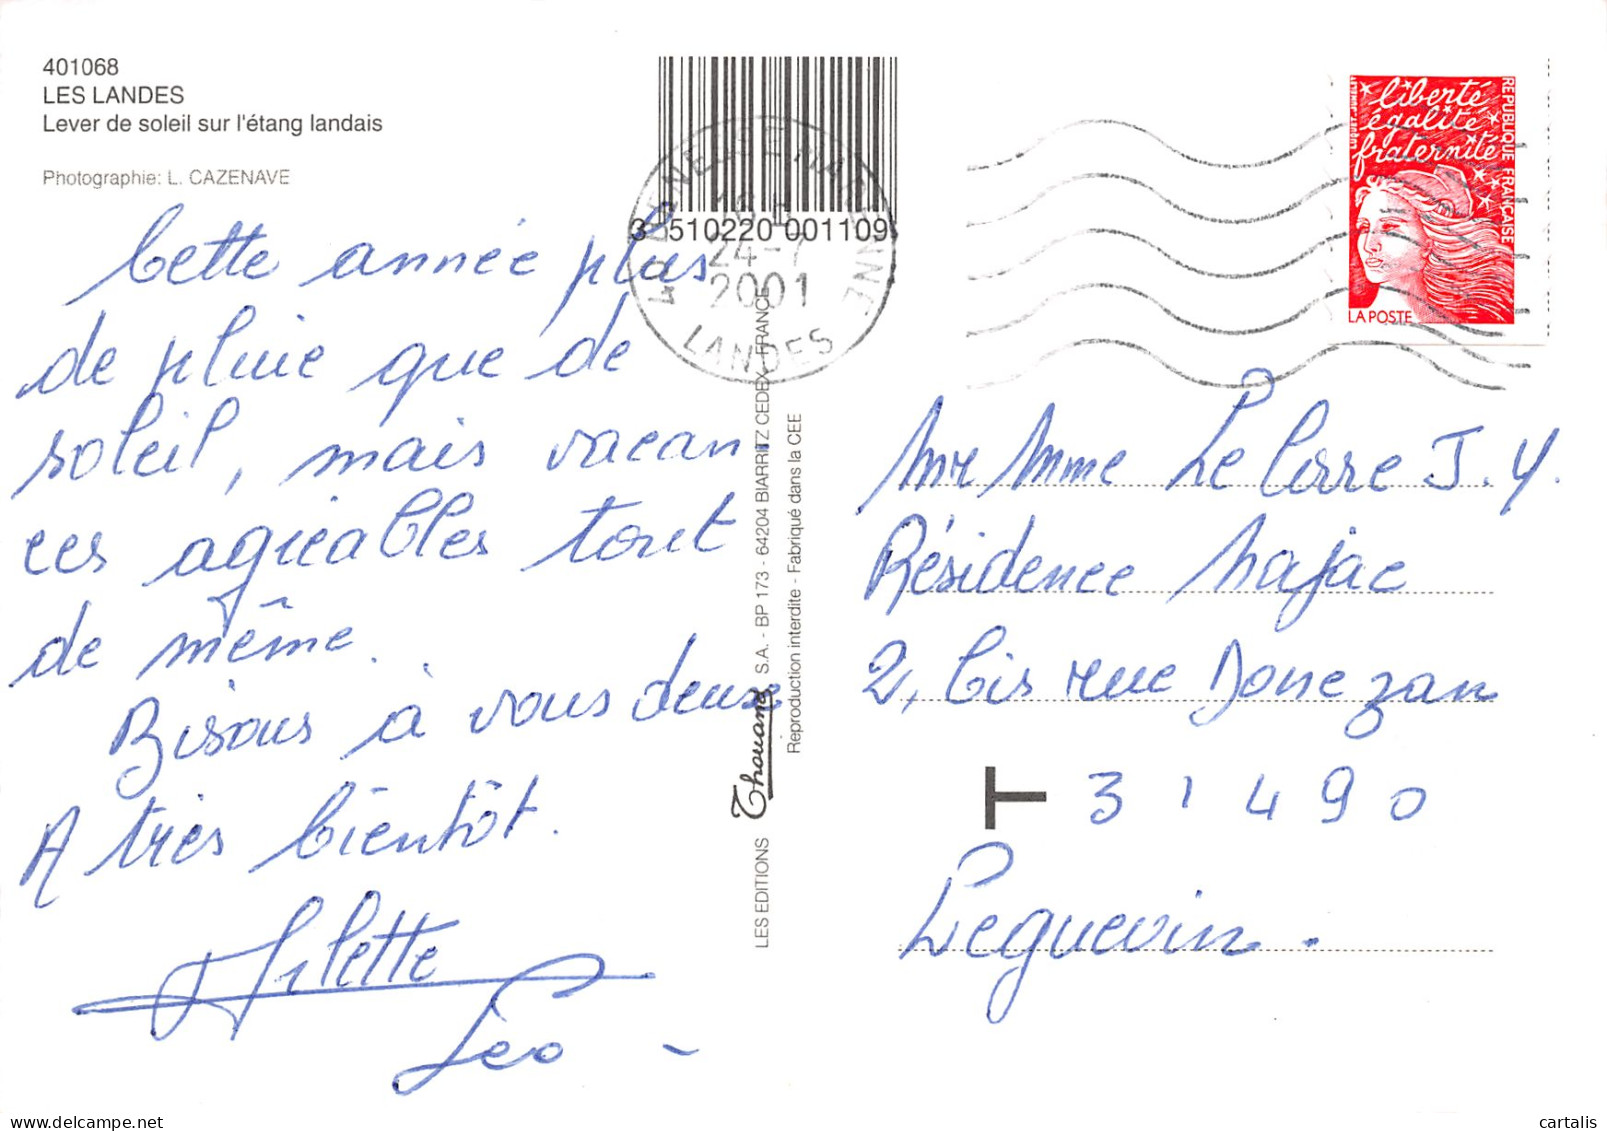 401068
LES LANDES
Lever de soleil sur l'étang landais
Photographie: L. CAZENAVE
Cette année plus
de pluie que de
soleil, mais vacan
ces agréables tout
de même.
Bisous à vous deux
A très bientôt.
Arlette
Leo -
3 510220 001109
24-7
2001
LANDES
LES EDITIONS Thouand S.A. - BP 173 - 64204 BIARRITZ CEDEX - FRANCE
Reproduction interdite - Fabriqué dans la CEE
liberté
égalité
fraternité
REPUBLIQUE FRANÇAISE
LA POSTE
Mr Mme Le Corre J.Y.
Résidence Najac
2, bis rue Donezan
T 31490
Leguevin.
cartalis